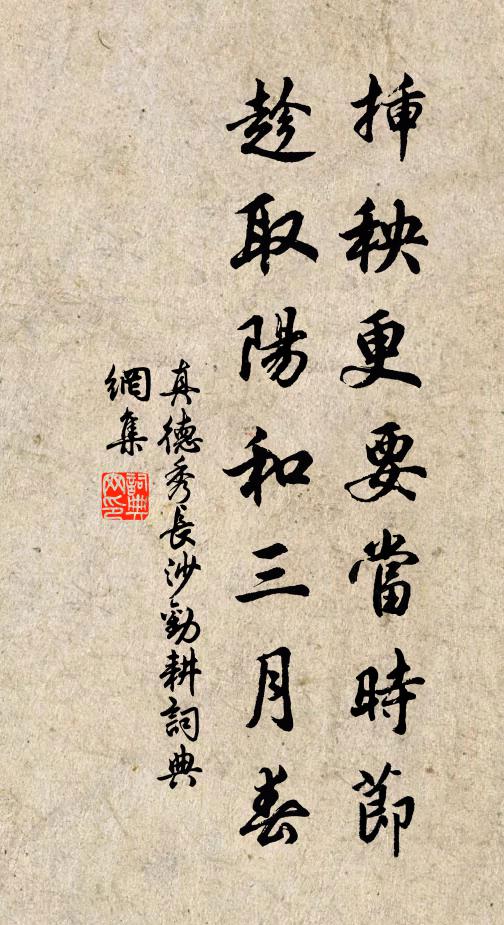 揷秧更要當時節
趁取陽和三月春
真德秀長沙勸耕詞典
網集
詞典